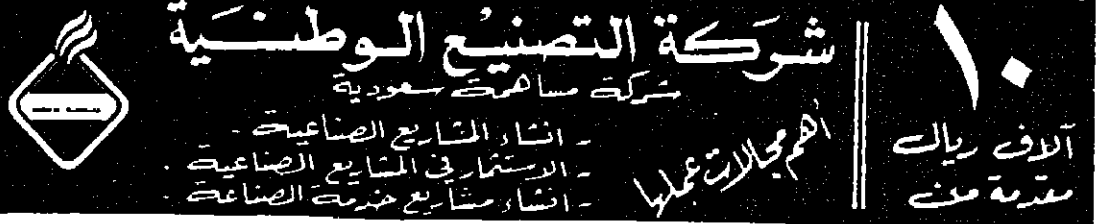 ١٠
آلاف ريال
مقدمة من
شركة التصنيع الوطنية
شركة مساهمة سعودية
أهم مجالات عملها
- انشاء المشاريع الصناعية .
- الاستثمار في المشاريع الصناعية .
- انشاء مشاريع خدمة الصناعة .